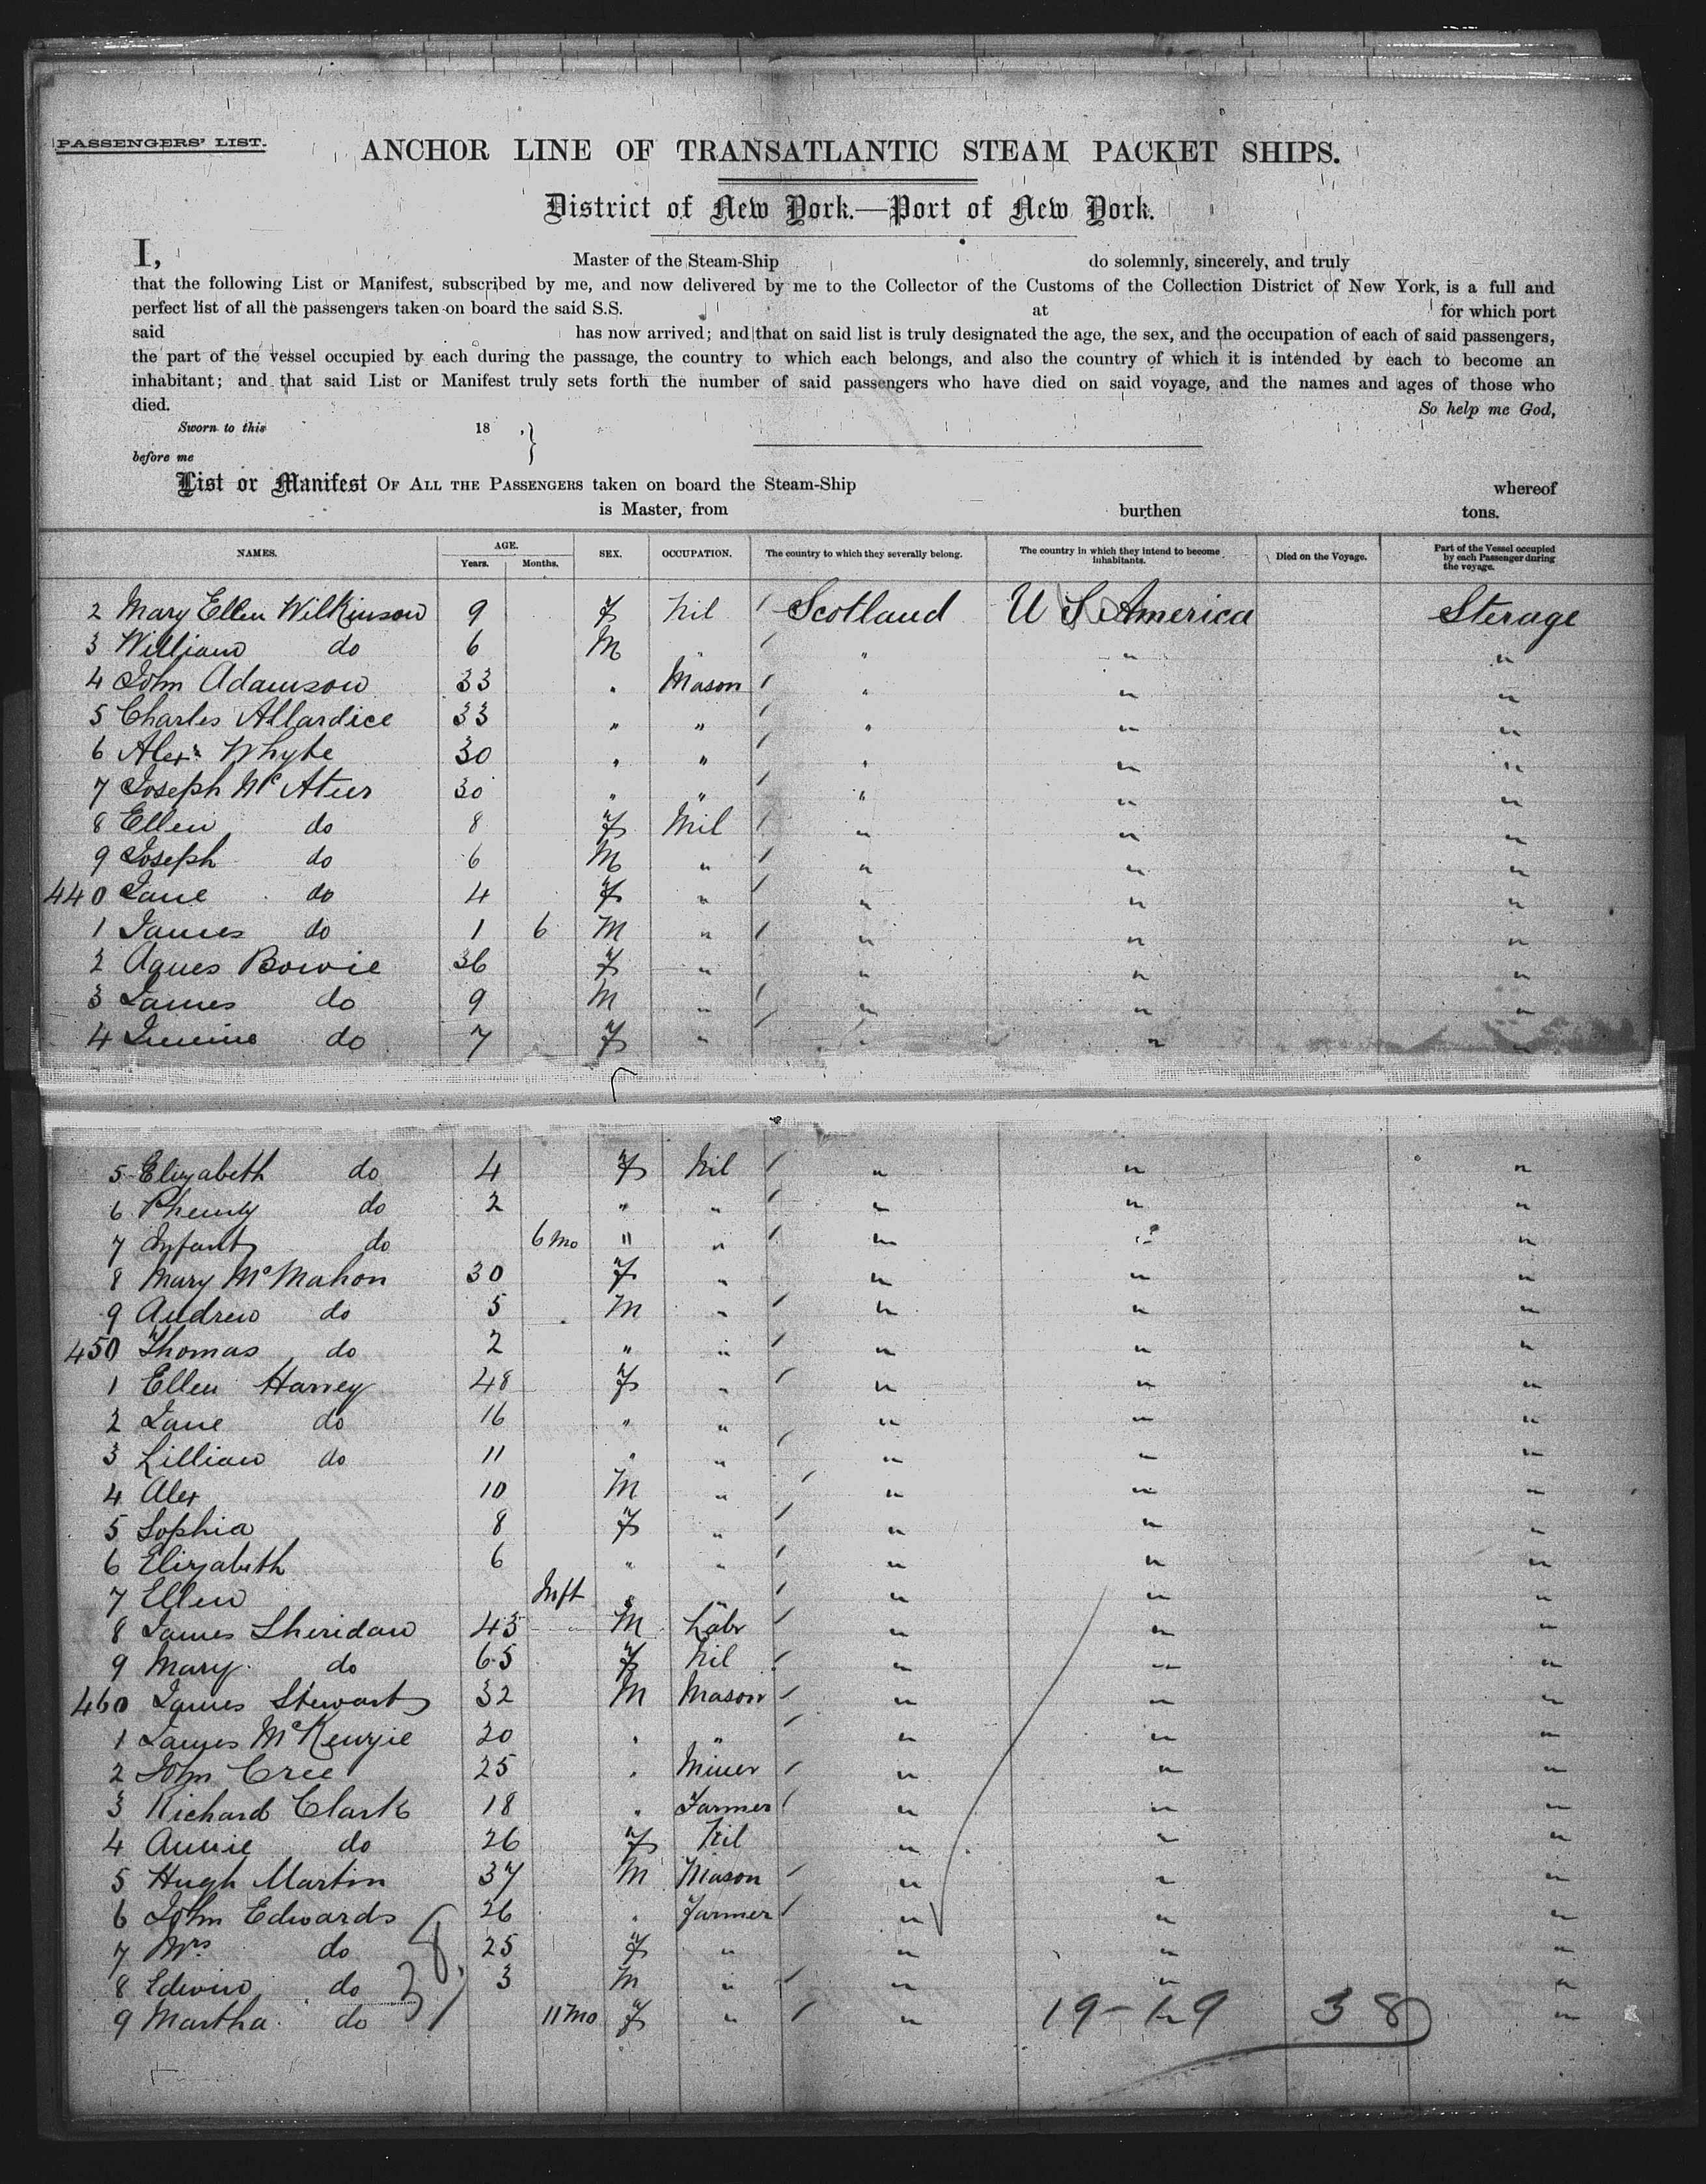 PASSENGERS' LIST.
ANCHOR LINE OF TRANSATLANTIC STEAM PACKET SHIPS.
District of New York.—Port of New York.
I, Master of the Steam-Ship do solemnly, sincerely, and truly
that the following List or Manifest, subscribed by me, and now delivered by me to the Collector of the Customs of the Collection District of New York, is a full and
perfect list of all the passengers taken on board the said S.S. at for which port
said has now arrived; and that on said list is truly designated the age, the sex, and the occupation of each of said passengers,
the part of the vessel occupied by each during the passage, the country to which each belongs, and also the country of which it is intended by each to become an
inhabitant; and that said List or Manifest truly sets forth the number of said passengers who have died on said voyage, and the names and ages of those who
died. So help me God,
Sworn to this 18 , }
before me
List or Manifest OF ALL THE PASSENGERS taken on board the Steam-Ship whereof
is Master, from burthen tons.
NAMES. AGE. Years. Months. SEX. OCCUPATION. The country to which they severally belong. The country in which they intend to become inhabitants. Died on the Voyage. Part of the Vessel occupied by each Passenger during the voyage.
2 Mary Ellen Wilkinson 9 F Nil / Scotland U S America Sterage
3 William do 6 M " / " " "
4 John Adamson 33 " Mason / " " "
5 Charles Allardice 33 " " / " " "
6 Alexr Whyte 30 " " / " " "
7 Joseph Mc Ateer 30 " " / " " "
8 Ellen do 8 F Nil / " " "
9 Joseph do 6 M " / " " "
440 Jane do 4 F " / " " "
1 James do 1 6 M " / " " "
2 Agnes Bowie 36 F " " " "
3 James do 9 M " / " " "
4 do 7 F " / " " "
5 Elizabeth do 4 F Nil / " " "
6 do 2 " " / " " "
7 Infant do 6 mo " " / " " "
8 Mary McMahon 30 F " " " "
9 Andrew do 5 M " / " " "
450 Thomas do 2 " " / " " "
1 Ellen Harvey 48 F " / " " "
2 Jane do 16 " " " " "
3 Lillian do 11 " " / " " "
4 Alex 10 M " / " " "
5 Sophia 8 F " / " " "
6 Elizabeth 6 " " / " " "
7 Ellen Inft " / " " "
8 James Sheridan 43 M Labr / " " "
9 Mary do 65 F Nil / " " "
460 James Stewart 32 M Mason / " " "
1 James McKenzie 20 " " / " " "
2 John Cree 25 " Miner / " " "
3 Richard Clark 18 " Farmer / " " "
4 Annie do 26 F Nil " " "
5 Hugh Martin 37 M Mason / " " "
6 John Edwards 26 " Farmer / " " "
7 Mrs do 25 F " " " "
8 Edwin do 3 M " / " " "
9 Martha do 11 mo F " / " 19-19 38 "